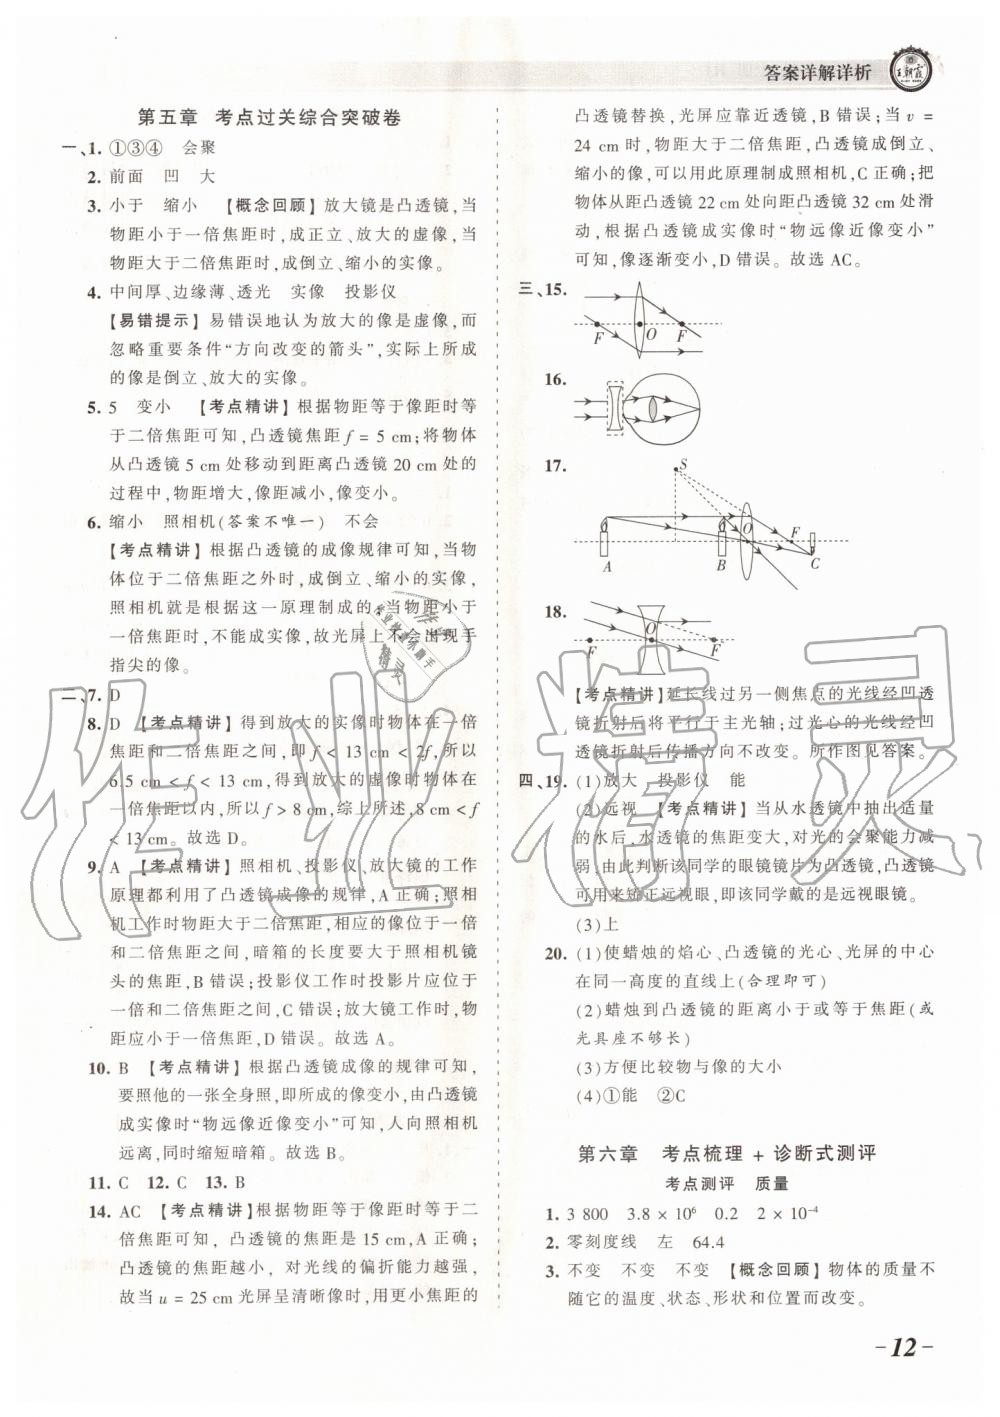 答案详解详析
王朝霞
第五章 考点过关综合突破卷
一、1. ①③④ 会聚
2. 前面 凹 大
3. 小于 缩小 【概念回顾】放大镜是凸透镜,当
物距小于一倍焦距时,成正立、放大的虚像,当
物距大于二倍焦距时,成倒立、缩小的实像。
4. 中间厚、边缘薄、透光 实像 投影仪
【易错提示】易错误地认为放大的像是虚像,而
忽略重要条件“方向改变的箭头”,实际上所成
的像是倒立、放大的实像。
5. 5 变小 【考点精讲】根据物距等于像距时等
于二倍焦距可知,凸透镜焦距 f = 5 cm;将物体
从凸透镜 5 cm 处移动到距离凸透镜 20 cm 处的
过程中,物距增大,像距减小,像变小。
6. 缩小 照相机(答案不唯一) 不会
【考点精讲】根据凸透镜的成像规律可知,当物
体位于二倍焦距之外时,成倒立、缩小的实像,
照相机就是根据这一原理制成的;当物距小于
一倍焦距时,不能成实像,故光屏上不会出现手
指尖的像。
二、7. D
8. D 【考点精讲】得到放大的实像时物体在一倍
焦距和二倍焦距之间,即 f < 13 cm < 2f,所以
6.5 cm < f < 13 cm,得到放大的虚像时物体在
一倍焦距以内,所以 f > 8 cm,综上所述,8 cm < f
< 13 cm。故选 D。
9. A 【考点精讲】照相机、投影仪、放大镜的工作
原理都利用了凸透镜成像的规律,A 正确;照相
机工作时物距大于二倍焦距,相应的像位于一倍
和二倍焦距之间,暗箱的长度要大于照相机镜
头的焦距,B 错误;投影仪工作时投影片应位于
一倍和二倍焦距之间,C 错误;放大镜工作时,物
距应小于一倍焦距,D 错误。故选 A。
10. B 【考点精讲】根据凸透镜成像的规律可知,
要照他的一张全身照,即所成的像变小,由凸透镜
成实像时“物远像近像变小”可知,人向照相机
远离,同时缩短暗箱。故选 B。
11. C 12. C 13. B
14. AC 【考点精讲】根据物距等于像距时等于二
倍焦距可知,凸透镜的焦距是 15 cm,A 正确;
凸透镜的焦距越小,对光线的偏折能力越强,
故当 u = 25 cm 光屏呈清晰像时,用更小焦距的
凸透镜替换,光屏应靠近透镜,B 错误;当 v =
24 cm 时,物距大于二倍焦距,凸透镜成倒立、
缩小的像,可以用此原理制成照相机,C 正确;把
物体从距凸透镜 22 cm 处向距凸透镜 32 cm 处滑
动,根据凸透镜成实像时“物远像近像变小”
可知,像逐渐变小,D 错误。故选 AC。
三、15.
F O F
16.
17.
S
O F
A B C
18.
O
F F
【考点精讲】延长线过另一侧焦点的光线经凹透
镜折射后将平行于主光轴;过光心的光线经凹
透镜折射后传播方向不改变。所作图见答案。
四、19. (1)放大 投影仪 能
(2)远视 【考点精讲】当从水透镜中抽出适量
的水后,水透镜的焦距变大,对光的会聚能力减
弱,由此判断该同学的眼镜镜片为凸透镜,凸透镜
可用来矫正远视眼,即该同学戴的是远视眼镜。
(3)上
20. (1)使蜡烛的焰心、凸透镜的光心、光屏的中心
在同一高度的直线上(合理即可)
(2)蜡烛到凸透镜的距离小于或等于焦距(或
光具座不够长)
(3)方便比较物与像的大小
(4)①能 ②C
第六章 考点梳理 + 诊断式测评
考点测评 质量
1. 3 800 3.8 × 10⁶ 0.2 2 × 10⁻⁴
2. 零刻度线 左 64.4
3. 不变 不变 不变 【概念回顾】物体的质量不
随它的温度、状态、形状和位置而改变。
-12-
作业精灵